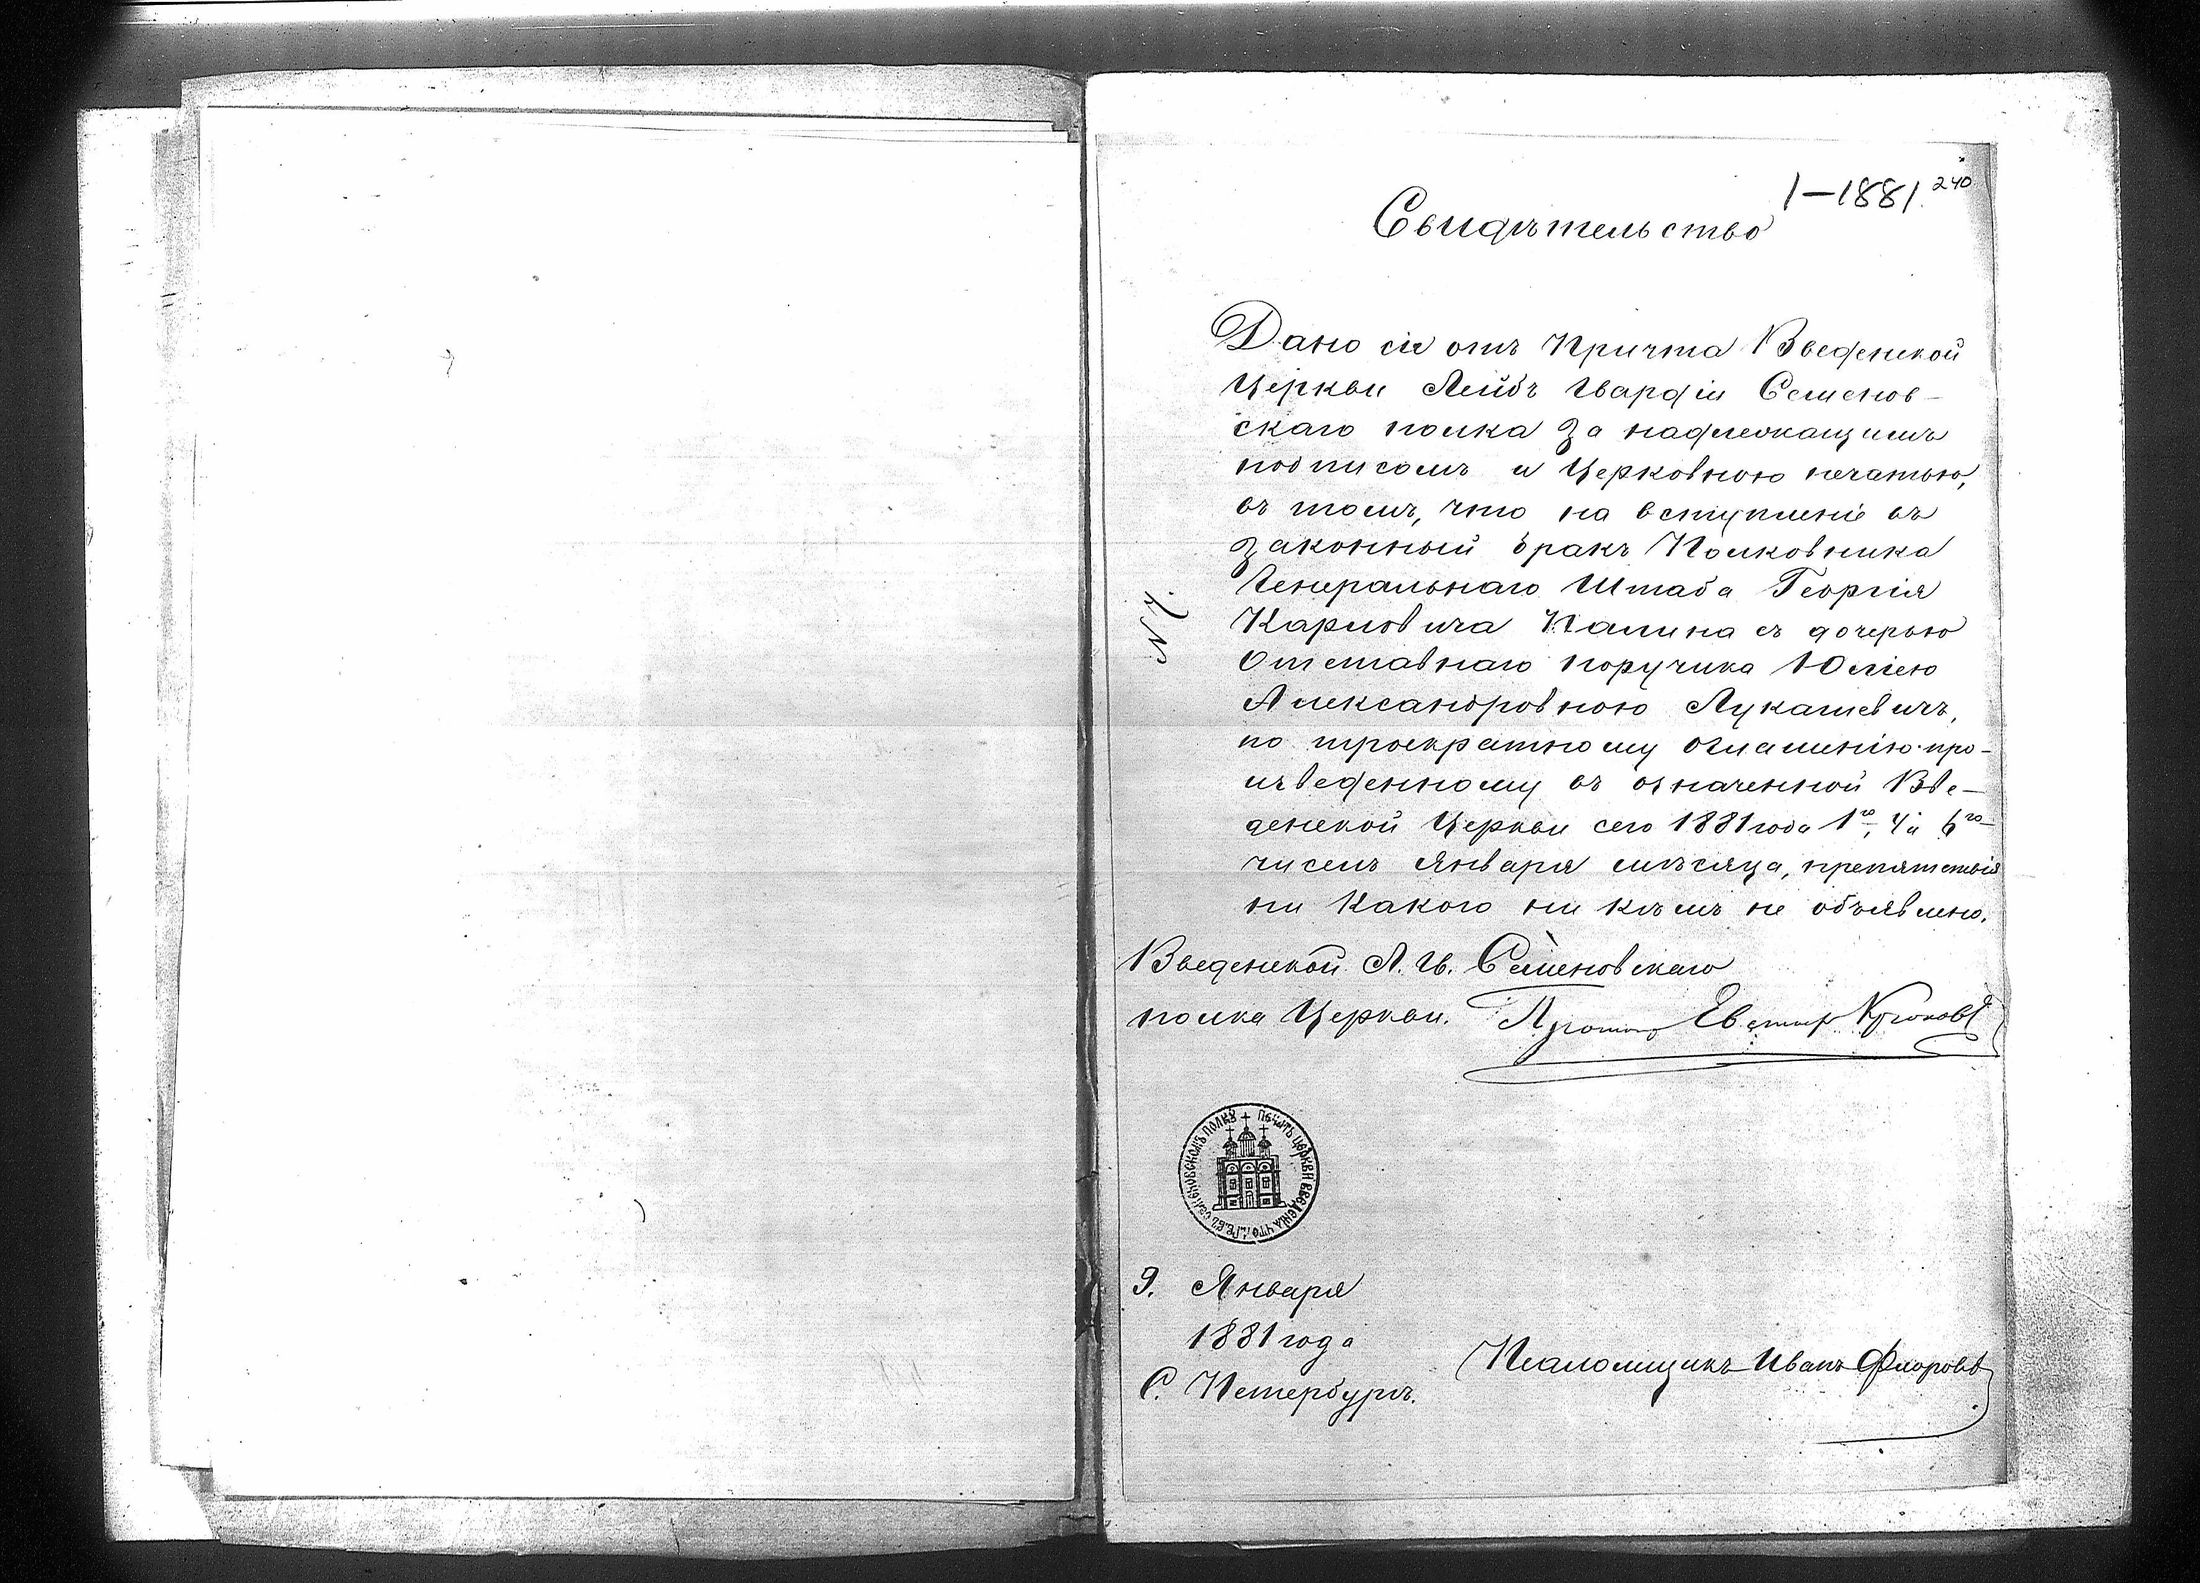 1–1881. 240
Свидѣтельство
Дано сіе отъ Причта Введенской
Церкви Лейбъ Гвардіи Семенов-
скаго полка за надлежащимъ
подписомъ и Церковною печатью,
въ томъ, что на вступленіе въ
законный бракъ Полковника
Генеральнаго Штаба Георгія
Карловича Палина съ дочерью
Отставнаго поручика Юліею
Александровною Лукашевичъ,
по троекратному оглашенію про-
изведенному въ означенной Вве-
денской Церкви сего 1881 года 1го, 4 и 6го
чиселъ Января мѣсяца, препятствія
ни какого ни кѣмъ не объявлено.
Введенской Л. Гв. Семеновскаго
полка Церкви. Крюковъ
ПЕЧАТЬ ЦЕРКВИ ВВЕДЕНІЯ СЕМЕНОВСКОМЪ ПОЛКУ
9. Января
1881 года
С. Петербургъ.
Псаломщикъ Иванъ Флоровъ